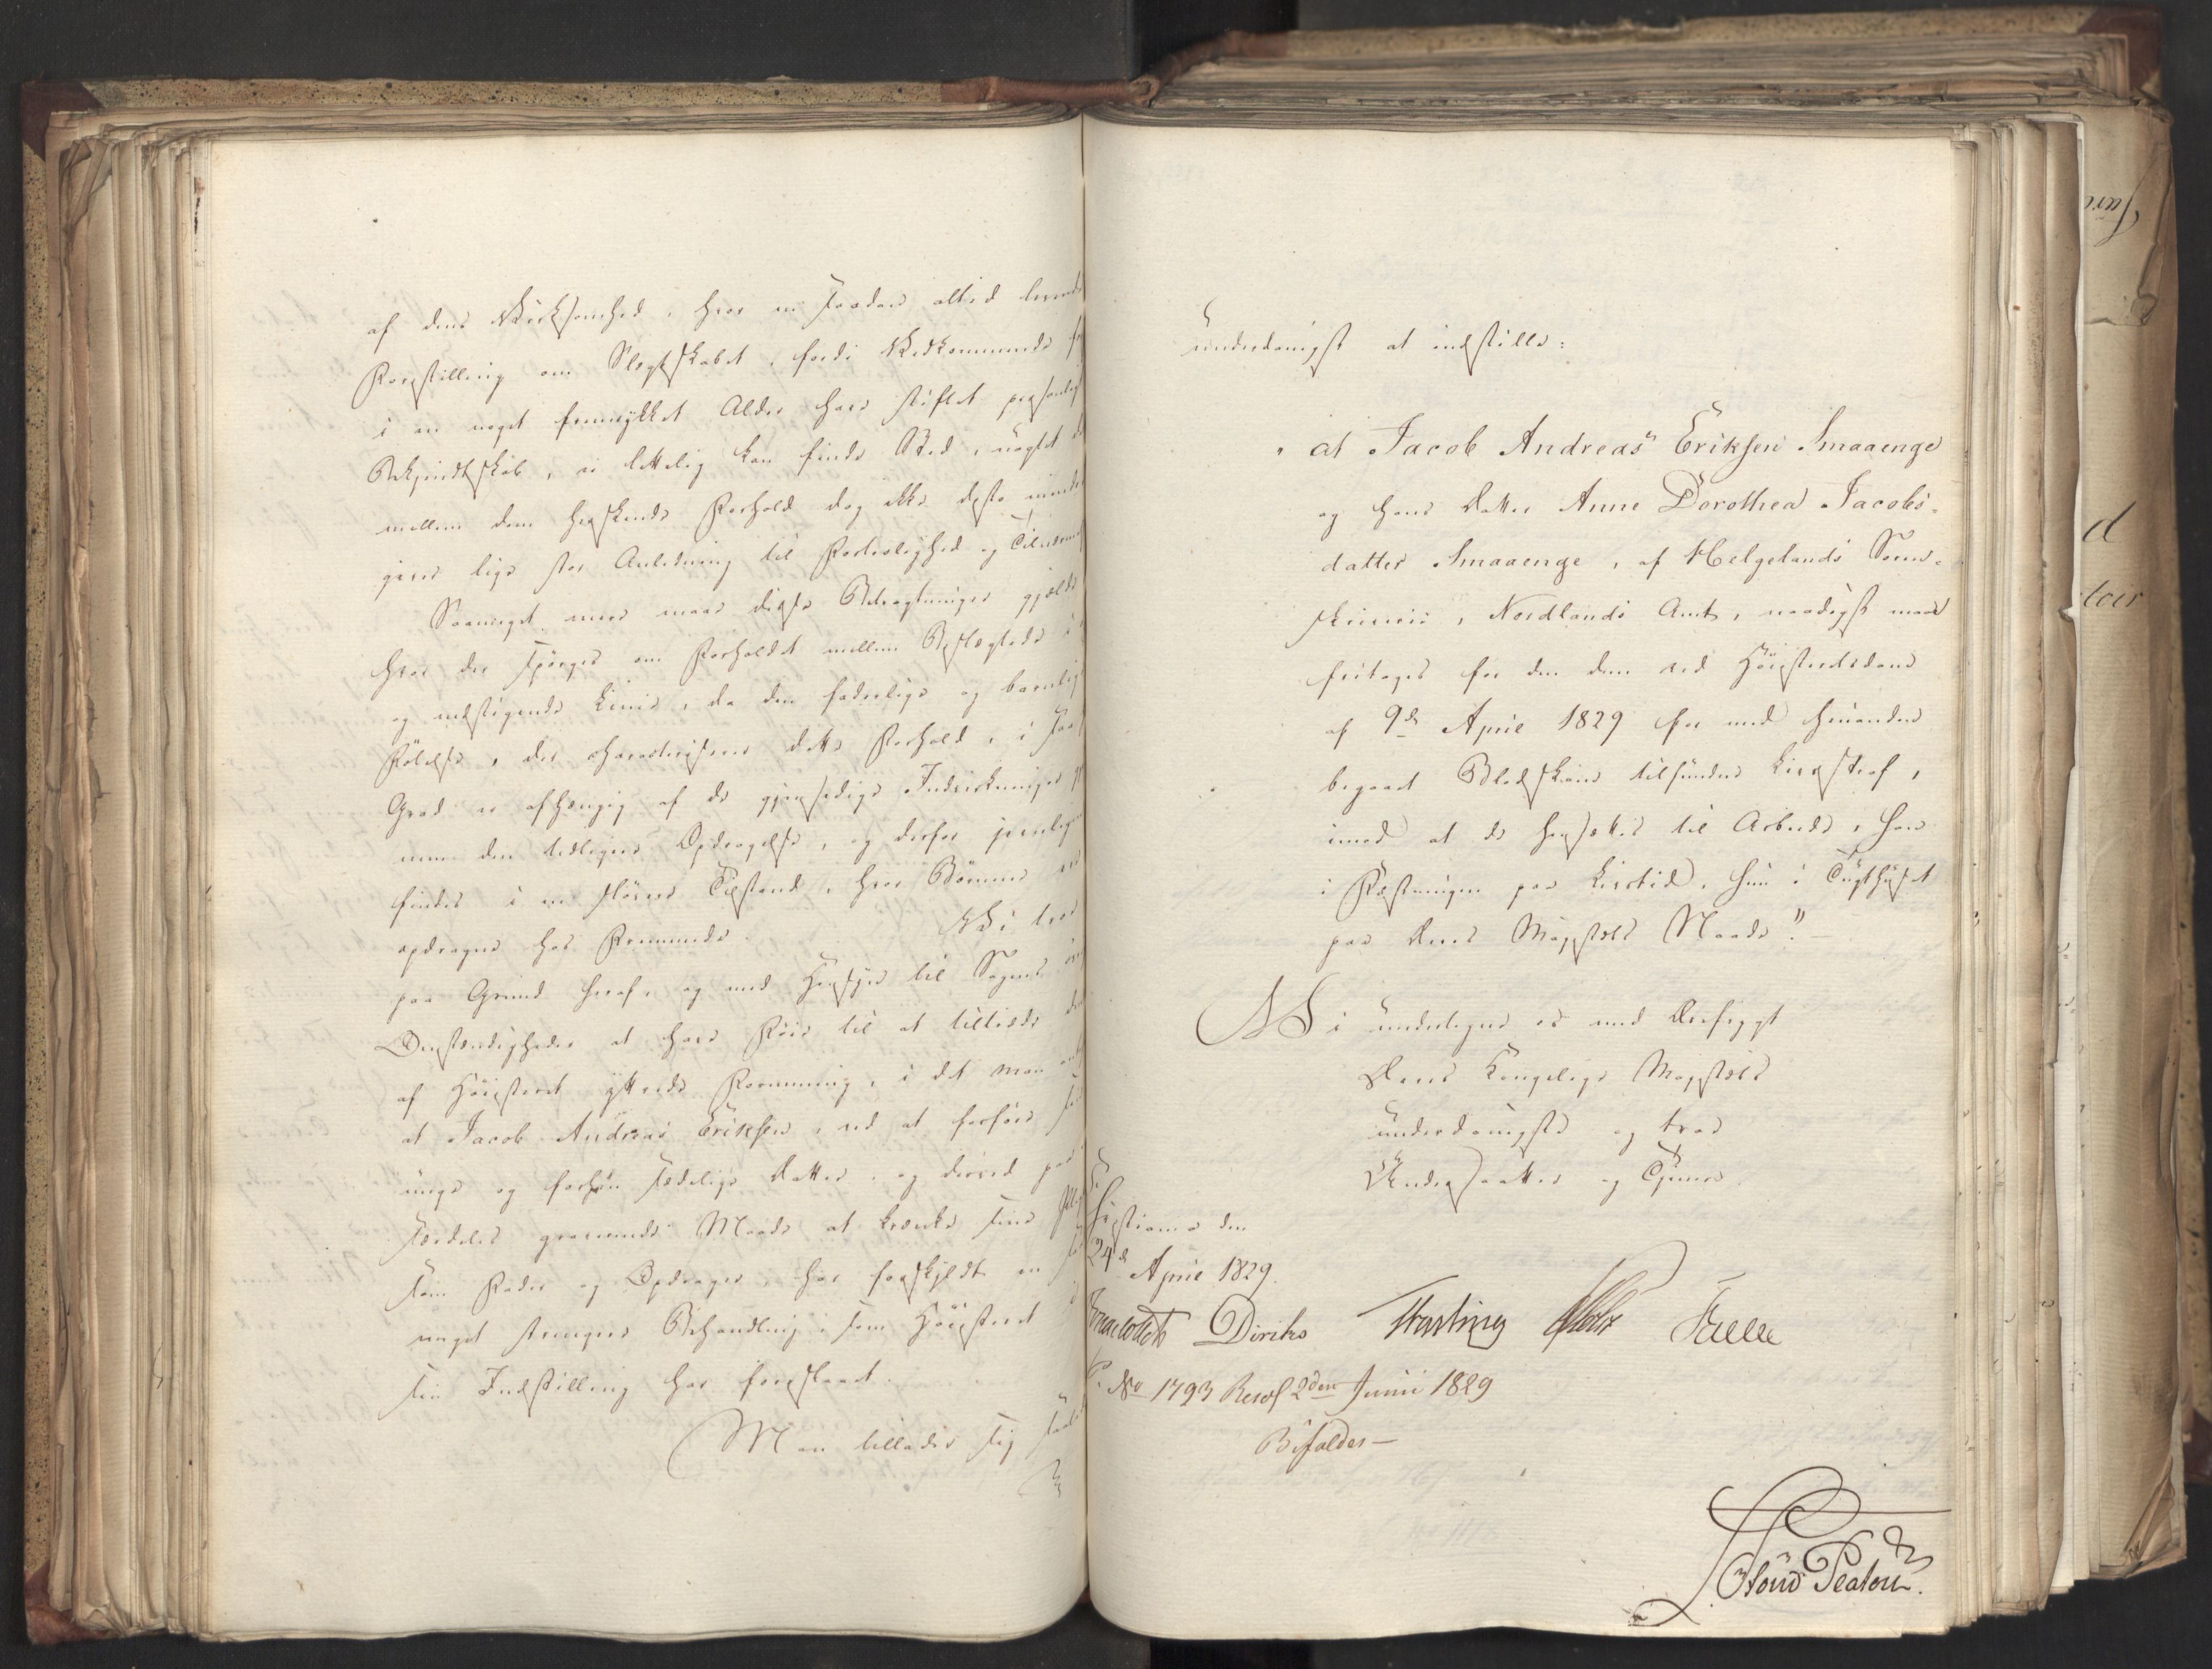 af dens Virksomhed, hvor en saadan altid levende
Forestilling om Slægtskabet, fordi Vedkommende først
i en noget fremrykket Alder have stiftet personligt
Bekjendtskab, ei lettelig kan finde Sted, uagtet det
mellem dem herskende Forhold dog ikke desto mindre
giver lige stor Anledning til Fortrolighed og Tilnærmelse
Saameget mere maae disse Betragtninger gjælde
hvor der spørges om Forholdet mellem Beslægtede i
og nedstigende Linie, da den faderlige og barnlige
Følelse, der characteriserer dette Forhold, i saa
Grad er afhængig af de gjensidige Indvirkninger
den tidligere Opdragelse, og derfor jevnligen
findes i en sløvere Tilstand, hvor Børnene ere
opdragne hos Fremmede. Vi troe
paa Grund heraf, og med Hensyn til Sagens øvrige
Omstændigheder at have Føie til at tiltræde den
af Høiesteret yttrede Formening, i det man
at Jacob Andreas Eriksen, ved at forføre sin
unge og forhen sædelige Datter, og derved paa
særdeles graverende Maade at krænke sine Pligter
som Fader og Opdrager, har forskyldt en
meget strengere Behandling, som Høiesteret i
sin Indstilling har foreslaaet.
Man tillader sig saaledes
underdanigst at indstille:
" at Jacob Andreas Eriksen Smaaenge
og hans Datter Anne Dorothea Jacobs-
datter Smaaenge, af Helgelands Soren-
skriverie, Nordlands Amt, naadigst maae
fritages for den dem ved Høiesteretsdom
af 9de April 1829 for med hinanden
begaaet Blodskam tilfundne Livsstraf,
imod at de hensættes til Arbeide, han
i Fæstningen paa Livstid, hun i Tugthuset
paa Deres Majestæts Naade". —
Vi undertegne os med Ærefrygt
Deres Kongelige Majestæts
underdanigste og troe
Undersaatter og Tjenere.
Christiania den
24de April 1829.
Diriks Krefting Holst Falbe
P. No 1793 Resol 2den Junii 1829
Bifaldes —